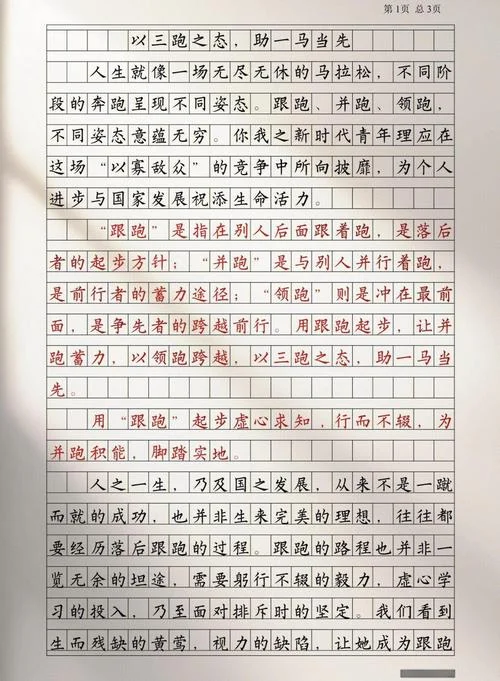 第1页 总3页
以三跑之态，助一马当先
人生就像一场无尽无休的马拉松，不同阶
段的奔跑呈现不同姿态。跟跑、并跑、领跑，
不同姿态意蕴无穷。你我之新时代青年理应在
这场“以寡敌众”的竞争中所向披靡，为个人
进步与国家发展祝添生命活力。
“跟跑”是指在别人后面跟着跑，是落后
者的起步方针；“并跑”是与别人并行着跑，
是前行者的蓄力途径；“领跑”则是冲在最前
面，是争先者的跨越前行。用跟跑起步，让并
跑蓄力，以领跑跨越，以三跑之态，助一马当
先。
用“跟跑”起步虚心求知，行而不辍，为
并跑积能，脚踏实地。
人之一生，乃及国之发展，从来不是一蹴
而就的成功，也并非生来完美的理想，往往都
要经历落后跟跑的过程。跟跑的路程也并非一
览无余的坦途，需要躬行不辍的毅力，虚心学
习的投入，乃至面对排斥时的坚定。我们看到
生而残缺的黄莺，视力的缺陷，让她成为跟跑